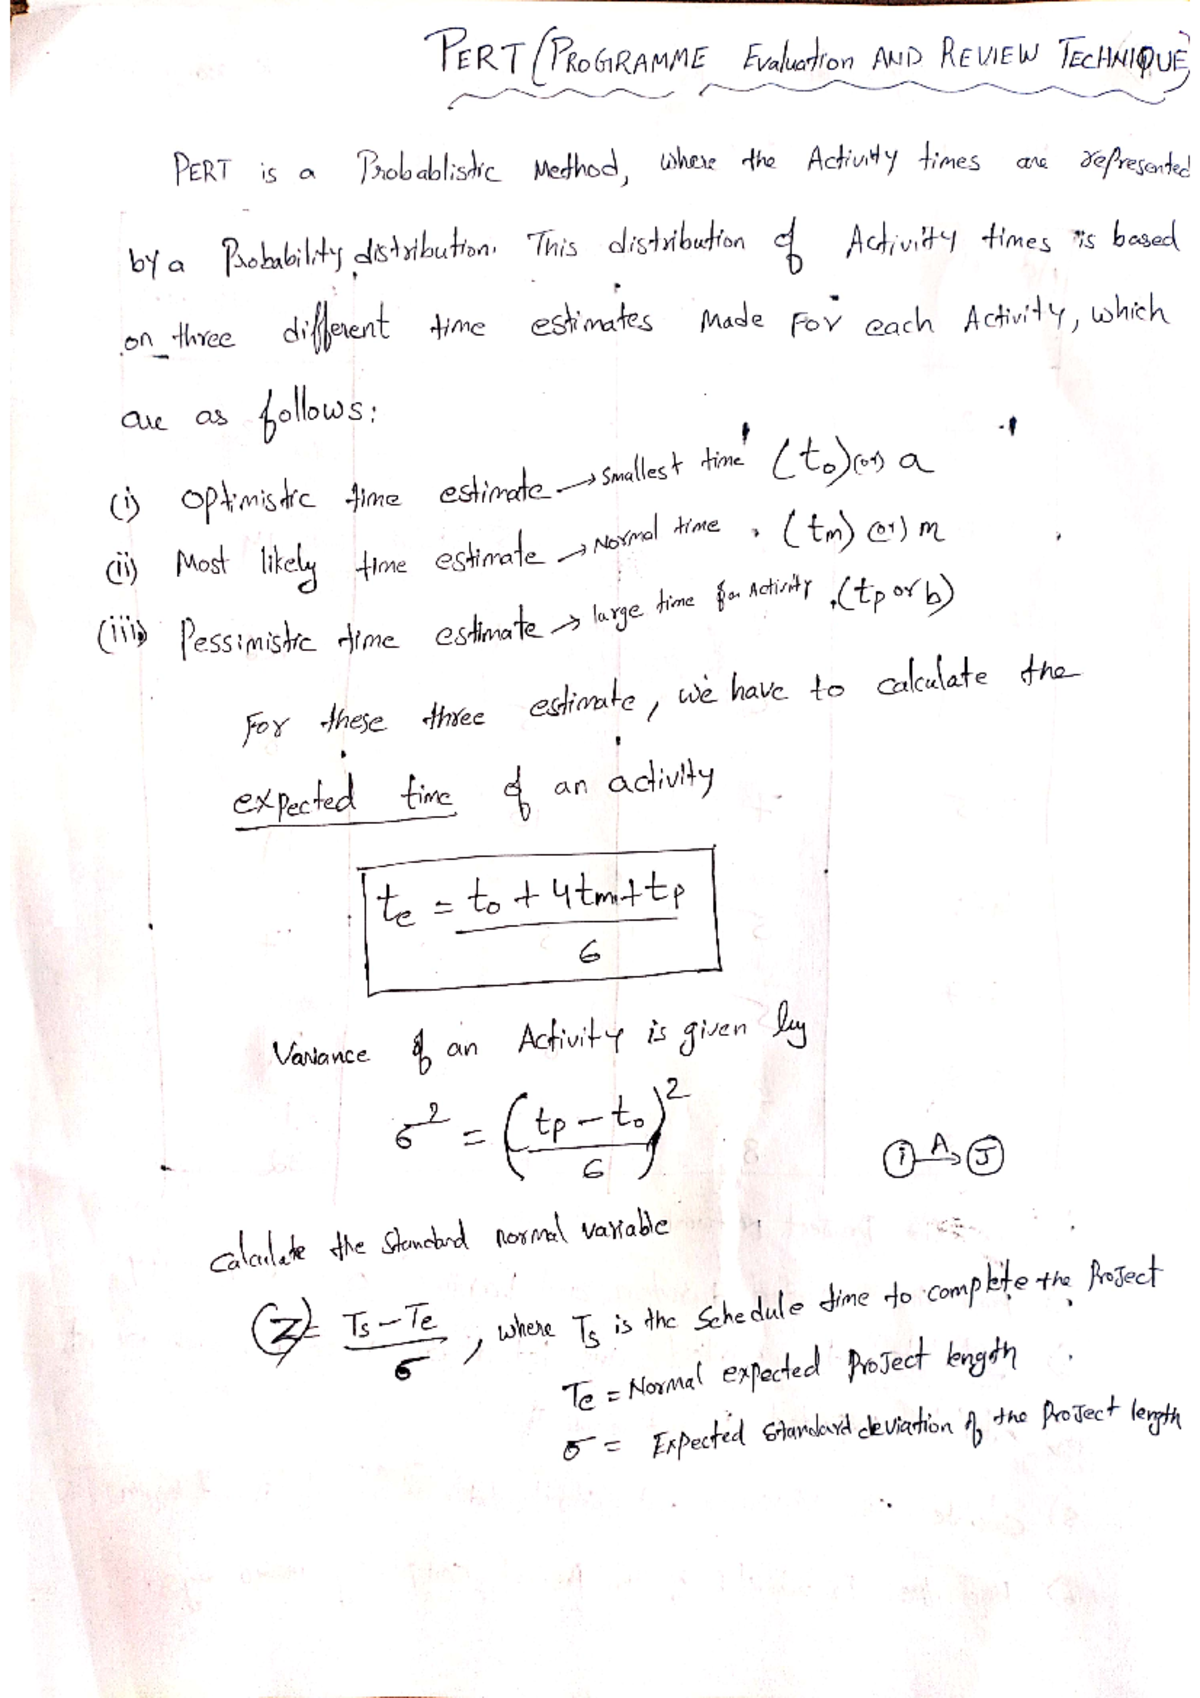 PERT (PROGRAMME Evaluation AND REVIEW TECHNIQUE)
PERT is a Probablistic Method, where the Activity times are represented
by a Probability distribution. This distribution of Activity times is based
on three different time estimates Made For each Activity, which
are as follows:
(i) Optimistic time estimate → Smallest time (to) (or) a
(ii) Most likely time estimate → Normal time . (tm) (or) m
(iii) Pessimistic time estimate → large time for Activity .(tp or b)
For these three estimate, we have to calculate the
expected time of an activity
te = to + 4tm + tp
6
Variance of an Activity is given by
σ² = (tp - to)²
6
i A J
Calculate the Standard normal variable
Z = Ts - Te , where Ts is the Schedule time to complete the Project
σ
Te = Normal expected Project length
σ = Expected Standard deviation of the Project length